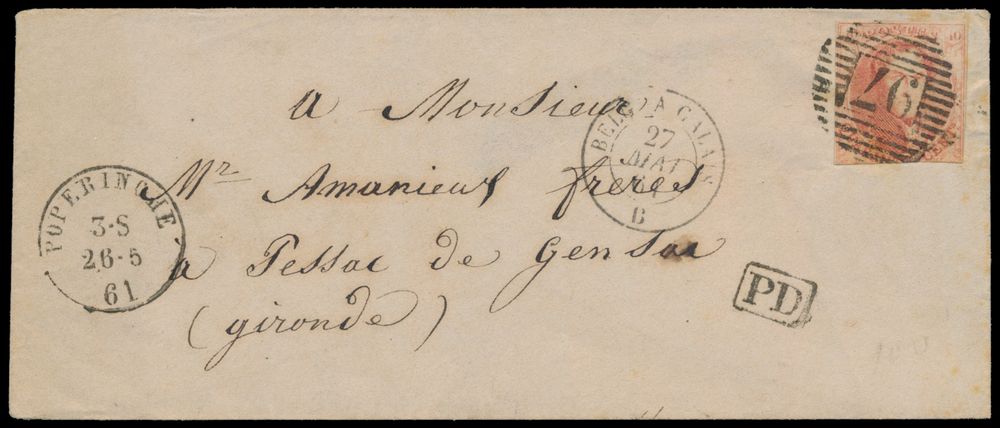 a Monsieur
Mr Amanieux freres
a Pessac de Gensac
(gironde)
POPERINGHE
3·S
26·5
61
BELG. A CALAIS
27
MAI
61
B
PD
97
40